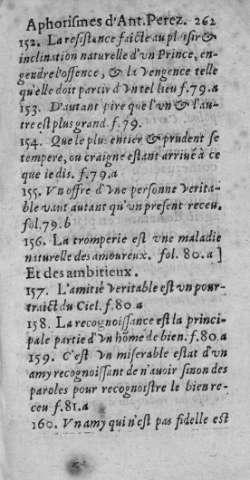 Aphorismes d'Ant. Perez. 262
152. La resistance faicte au plaisir &
inclination naturelle d'vn Prince, en-
gendre l'offence, & la vengence telle
qu'elle doit partir d'vn tel lieu f.79.a
153. D'autant pire que l'vn & l'au-
tre est plus grand. f.79.
154. Que le plus entier & prudent se
tempere, ou craigne estant arriué à ce
que ie dis. f.79.a
155. Vn offre d'vne personne verita-
ble vaut autant qu'vn present receu.
fol.79.b
156. La tromperie est vne maladie
naturelle des amoureux. fol. 80.a]
Et des ambitieux.
157. L'amitié veritable est vn pour-
traict du Ciel. f.80.a
158. La recognoissance est la princi-
pale partie d'vn hõme de bien. f.80.a
159. C'est vn miserable estat d'vn
amy recognoissant de n'auoir sinon des
paroles pour recognoistre le bien re-
ceu f.81.a
160. Vn amy qui n'est pas fidelle est